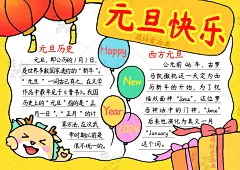 元旦快乐
元旦历史
元旦，即公历的1月1日，
是世界多数国家通行的“新年”。
“元旦”一词古已有之，在文学
作品中最早见于《晋书》。我国
历史上的“元旦”指的是“正
月一日”，“正月”的计
算方法，在汉武
帝时期以前是
很不统一的。
Happy
New
Year
西方元旦
公元前46年，古罗
马凯撒把这一天定为西
历新年的开始，为了祝
福双面神“Janus”，这位罗
马神话中的门神，“Janus”
后来也演化为英文一月
“January”
这个词。